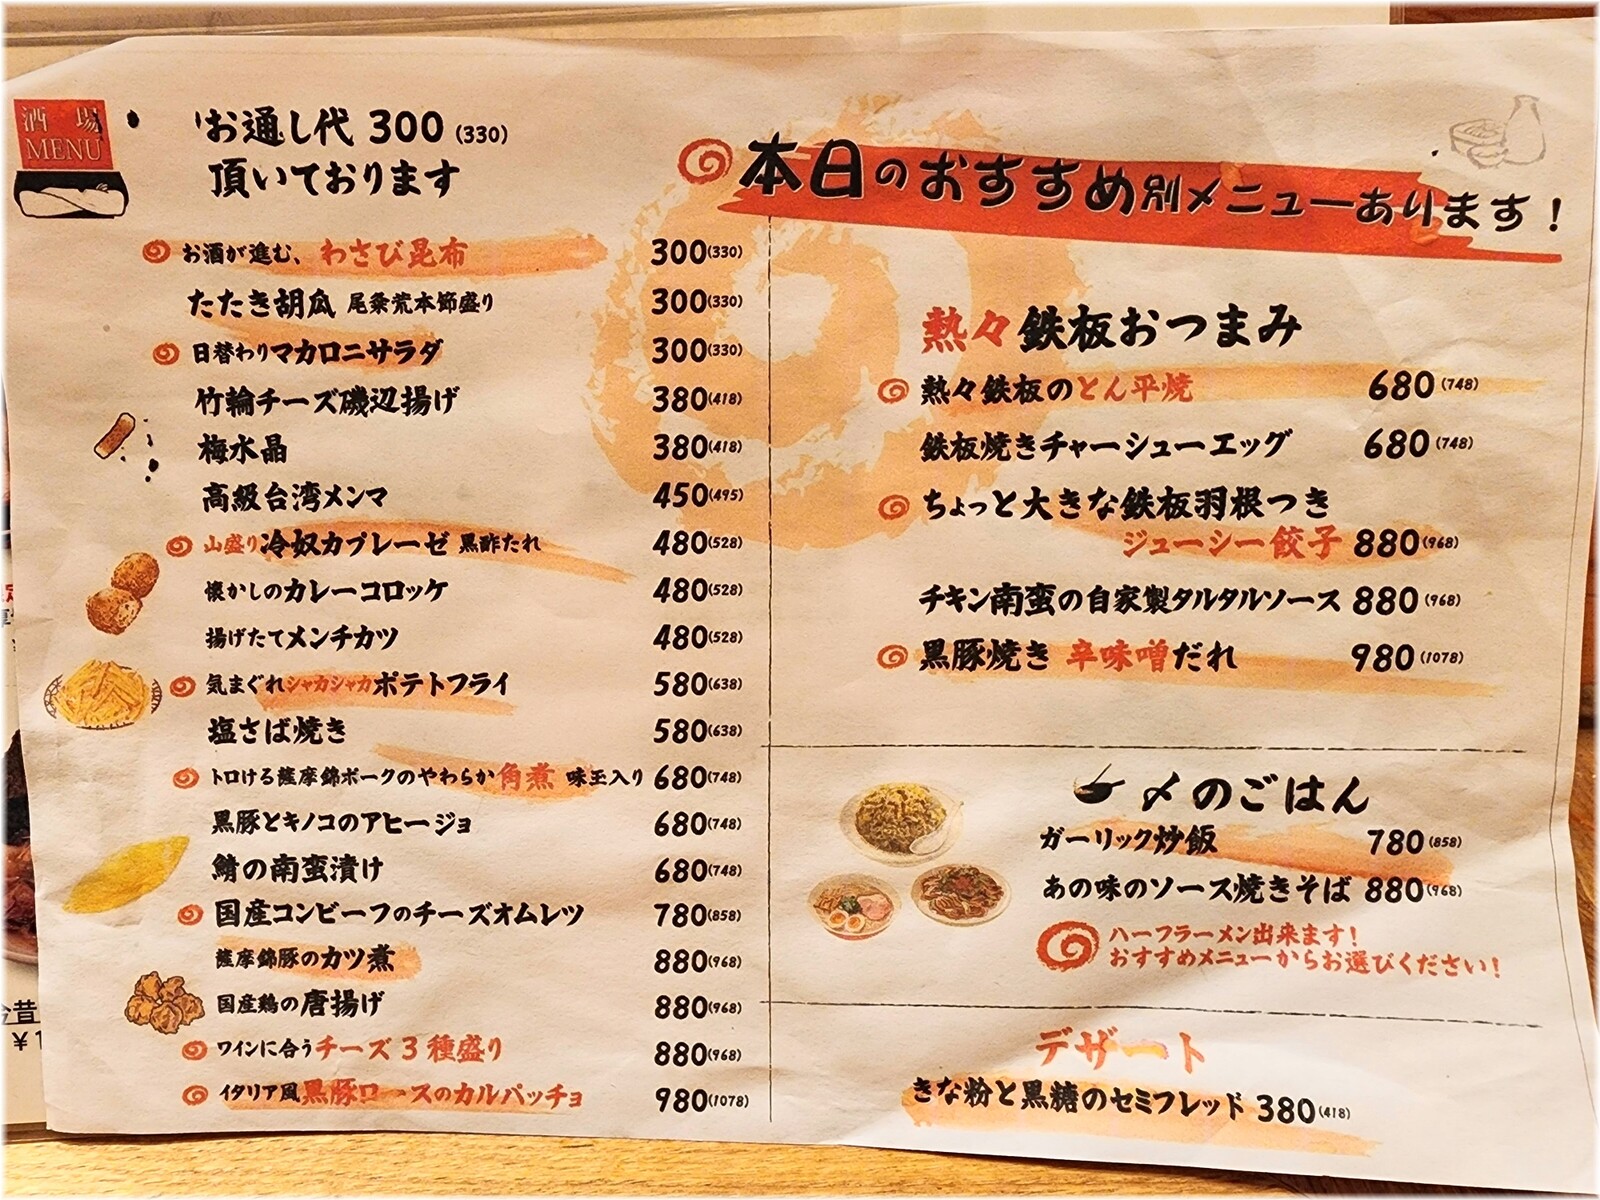 酒場
MENU
お通し代 300 (330)
頂いております
お酒が進む、わさび昆布 300(330)
たたき胡瓜 尾粂荒本節盛り 300(330)
日替わりマカロニサラダ 300(330)
竹輪チーズ磯辺揚げ 380(418)
梅水晶 380(418)
高級台湾メンマ 450(495)
山盛り冷奴カプレーゼ 黒酢たれ 480(528)
懐かしのカレーコロッケ 480(528)
揚げたてメンチカツ 480(528)
気まぐれシャカシャカポテトフライ 580(638)
塩さば焼き 580(638)
トロける薩摩錦ポークのやわらか角煮 味玉入り 680(748)
黒豚とキノコのアヒージョ 680(748)
鯖の南蛮漬け 680(748)
国産コンビーフのチーズオムレツ 780(858)
薩摩錦豚のカツ煮 880(968)
国産鶏の唐揚げ 880(968)
ワインに合うチーズ3種盛り 880(968)
イタリア風黒豚ロースのカルパッチョ 980(1078)
本日のおすすめ別メニューあります！
熱々鉄板おつまみ
熱々鉄板のとん平焼 680(748)
鉄板焼きチャーシューエッグ 680(748)
ちょっと大きな鉄板羽根つき
ジューシー餃子 880(968)
チキン南蛮の自家製タルタルソース 880(968)
黒豚焼き 辛味噌だれ 980(1078)
〆のごはん
ガーリック炒飯 780(858)
あの味のソース焼きそば 880(968)
ハーフラーメン出来ます！
おすすめメニューからお選びください！
デザート
きな粉と黒糖のセミフレッド 380(418)